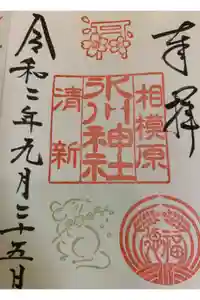 奉拝
相模原
氷川神社
清新
令和二年元月二十五日
福